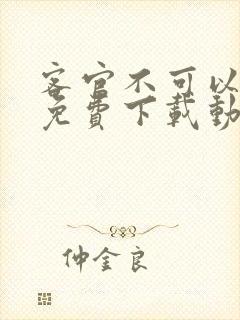 客官不可以
免費下載動
仲金良